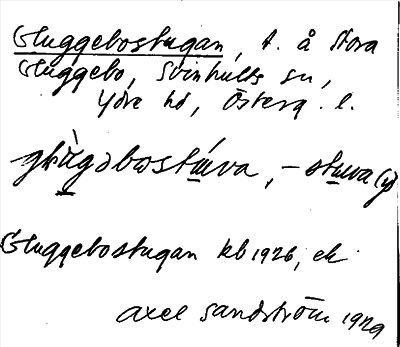 Gluggebostugan, t. å Stora
Gluggebo, Svinhults sn,
Ydre hd, Österg. l.
glùgəbostúva, -stuva (y)
Gluggebostugan kb 1926, ek
Axel Sandström 1929